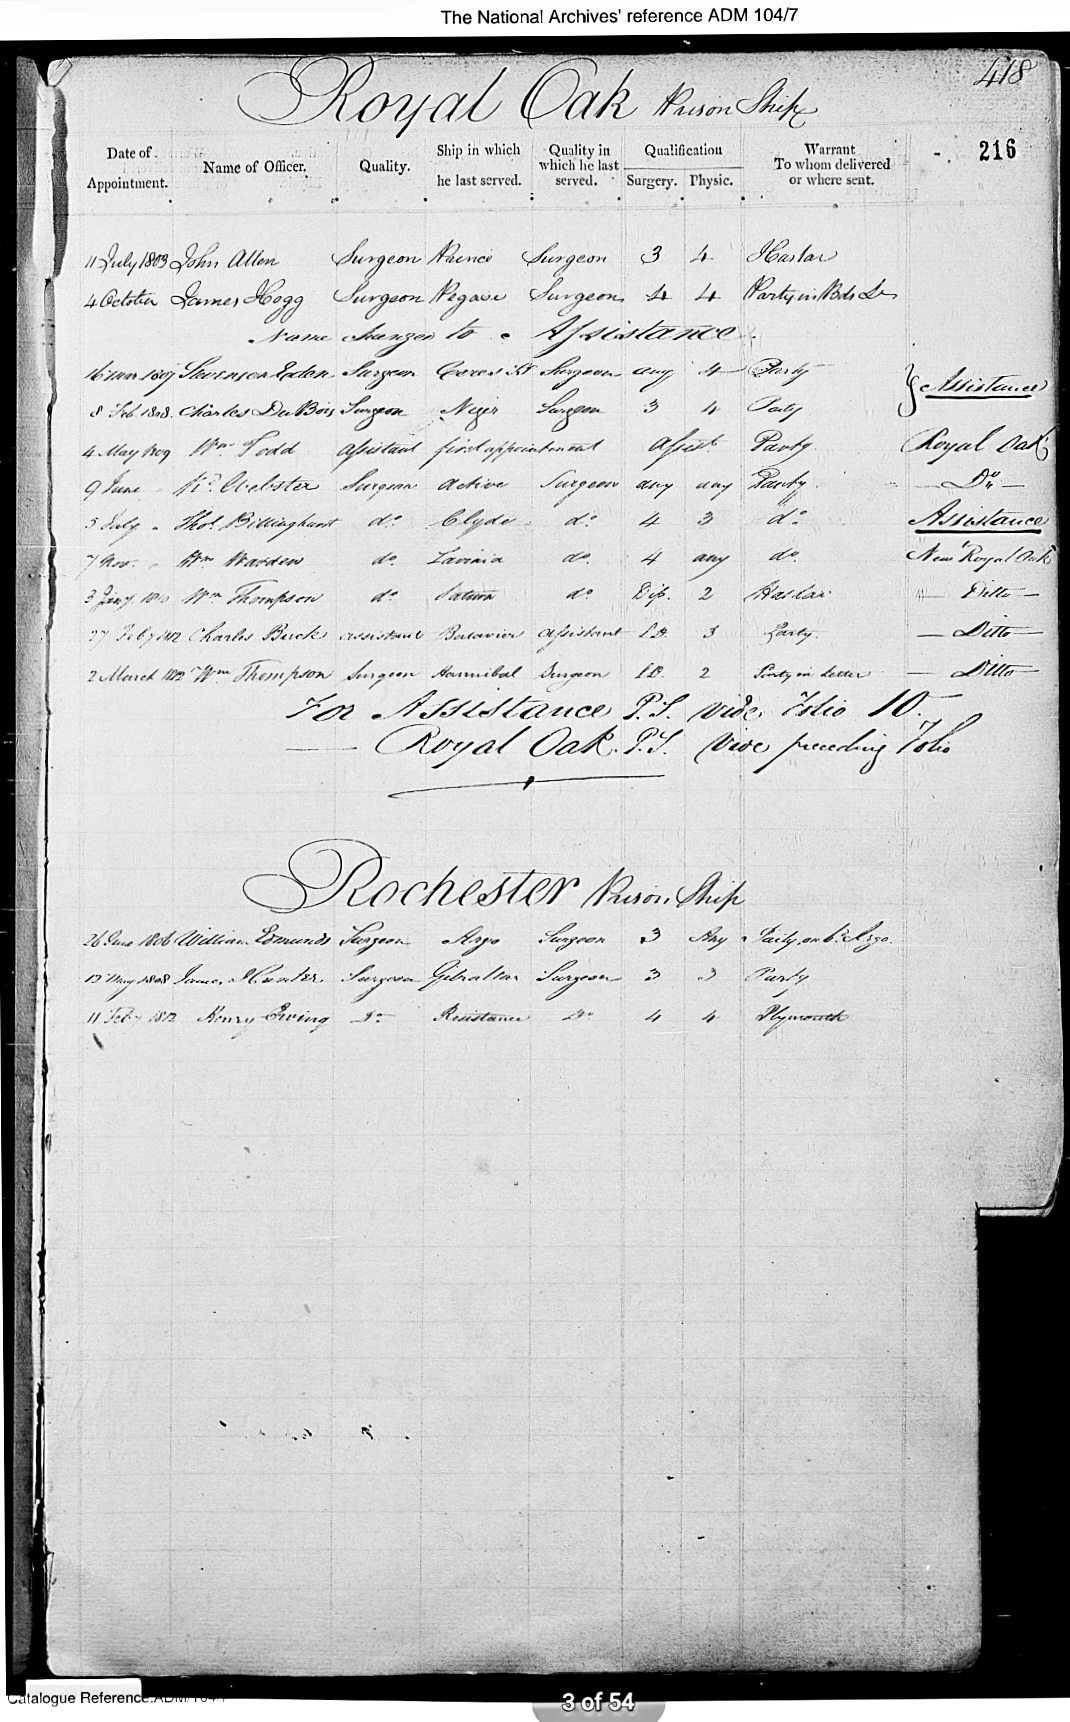 The National Archives' reference ADM 104/7
418
Royal Oak Prison Ship
216
Date of Appointment. Name of Officer. Quality. Ship in which he last served. Quality in which he last served. Qualification Surgery. Physic. Warrant To whom delivered or where sent.
11 July 1803 John Allen Surgeon Prince Surgeon 3 4 Haslar
4 October James Hogg Surgeon Pegase Surgeon 4 4 Party in Bds Lr
Name changed to Assistance
16 1807 Eden Surgeon Ceres Surgeon any 4 Party Assistance
8 Feb. 1808. Charles DuBois Surgeon Niger Surgeon 3 4 Party
4 May 1809 Wm Todd assistant first appointment assist. Party Royal Oak
9 June Webster Surgeon active Surgeon any any Party Do
5 July Thos. Billinghurst do. Clyde do. 4 3 do. Assistance
7 Nov. Wm Warden do. Lavinia do. 4 any do. New Royal Oak
3 Jany 1810 Wm Thompson do. Saturn do. Dip. 2 Haslar Ditto
27 Feby 1812 Charles Buck assistant Batavier assistant 3 Party. Ditto
2 March 1812 Wm Thompson Surgeon Hannibal Surgeon 2 Party in letter Ditto
For Assistance P.S. vide Folio 10.
Royal Oak P.S. vide preceding Folio
Rochester Prison Ship
26 June 1806 William Edmunds Surgeon Argo Surgeon 3 Any Party, on bd Argo.
May 1808 James Hunter Surgeon Gibraltar Surgeon 3 3 Party
11 Feby 1812 Henry Ewing Do Resistance Do 4 4 Plymouth
Catalogue Reference:ADM/104/7
3 of 54